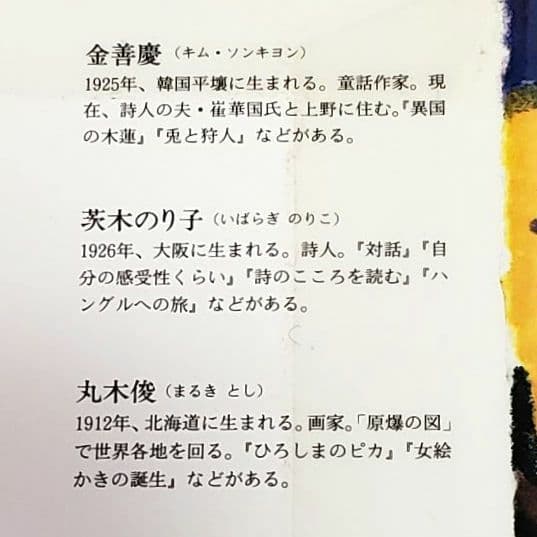 金善慶（キム・ソンキヨン）
1925年、韓国平壤に生まれる。童話作家。現
在、詩人の夫・崔華国氏と上野に住む。『異国
の木蓮』『兎と狩人』などがある。
茨木のり子（いばらぎ のりこ）
1926年、大阪に生まれる。詩人。『対話』『自
分の感受性くらい』『詩のこころを読む』『ハ
ングルへの旅』などがある。
丸木俊（まるき とし）
1912年、北海道に生まれる。画家。「原爆の図」
で世界各地を回る。『ひろしまのピカ』『女絵
かきの誕生』などがある。